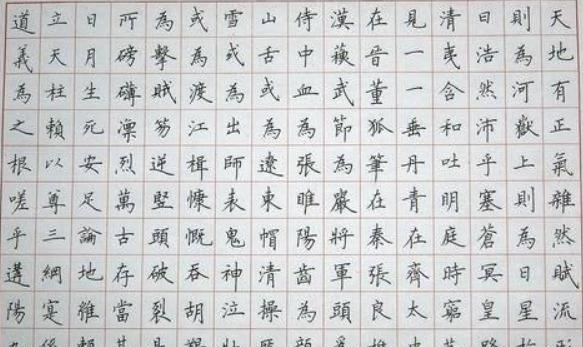 天地有正氣雜然賦流
則為河嶽上則為日星
曰浩然沛乎塞蒼冥皇
清夷含和吐明庭時窮
見一一垂丹青在齊太
在晉董狐筆在秦張良
漢蘇武節為嚴將軍頭
侍中血為張睢陽齒為
山舌或為遼東帽清操
雪或為出師表鬼神泣
或為渡江楫慷慨吞胡
為擊賊笏逆豎頭破裂
所磅礡凛烈萬古存當
日月生死安足論地維
立天柱賴以尊三綱寔
道義為之根嗟乎遘陽